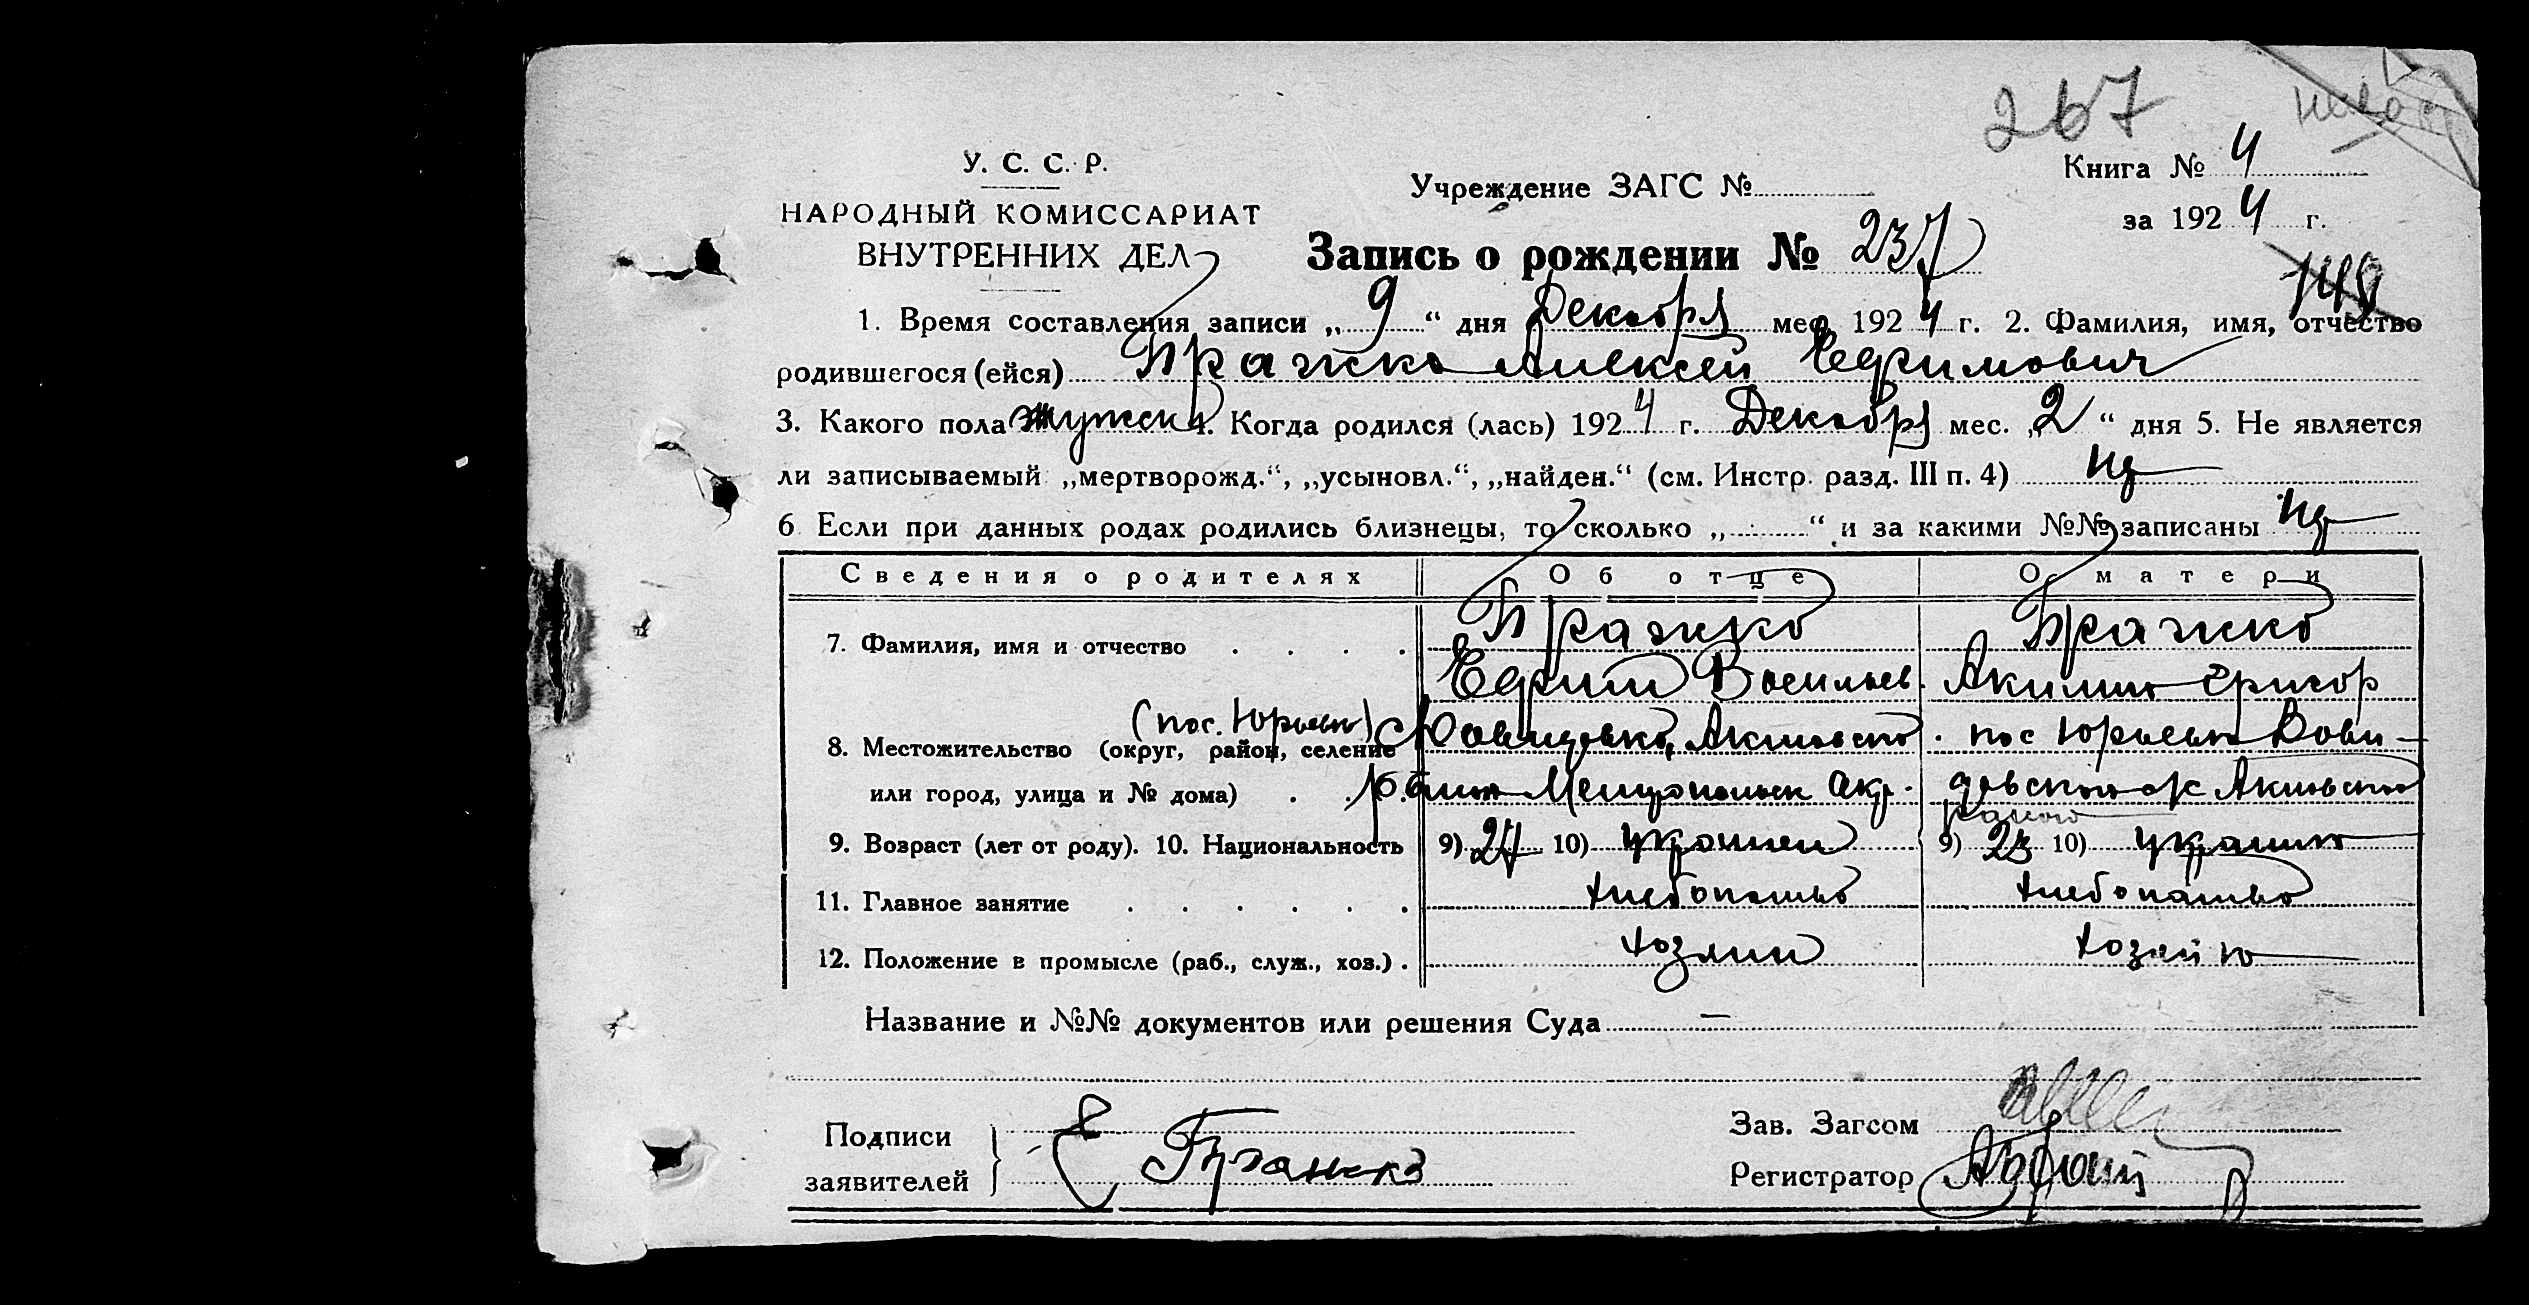 267
У. С. С. Р.
НАРОДНЫЙ КОМИССАРИАТ
ВНУТРЕННИХ ДЕЛ
Учреждение ЗАГС №
Книга № 4
за 1924 г.
Запись о рождении № 237
148
1. Время составления записи „ 9 “ дня Декабря мес. 1924 г. 2. Фамилия, имя, отчество
родившегося (ейся) Бражко Алексей Ефимович
3. Какого пола мужск 4. Когда родился (лась) 1924 г. Декабря мес. „ 2 “ дня 5. Не является
ли записываемый „мертворожд.“, „усыновл.“, „найден.“ (см. Инстр. разд. III п. 4) нет
6 Если при данных родах родились близнецы, то сколько „ “ и за какими №№ записаны нет
Сведения о родителях Об отце О матери
7. Фамилия, имя и отчество Бражко Бражко
Ефим Васильев. Акилина Григор
8. Местожительство (округ, район, селение (пос. Юрьевка) Акимовско пос Юрьевка
или город, улица и № дома) Мелитопольск окр. Акимовского
района
9. Возраст (лет от роду). 10. Национальность 9) 27 10) украинец 9) 23 10) украинка
11. Главное занятие хлебопашво хлебопашво
12. Положение в промысле (раб., служ., хоз.) хозяин хозяйка
Название и №№ документов или решения Суда —
Подписи
заявителей Е Бражко
Зав. Загсом
Регистратор